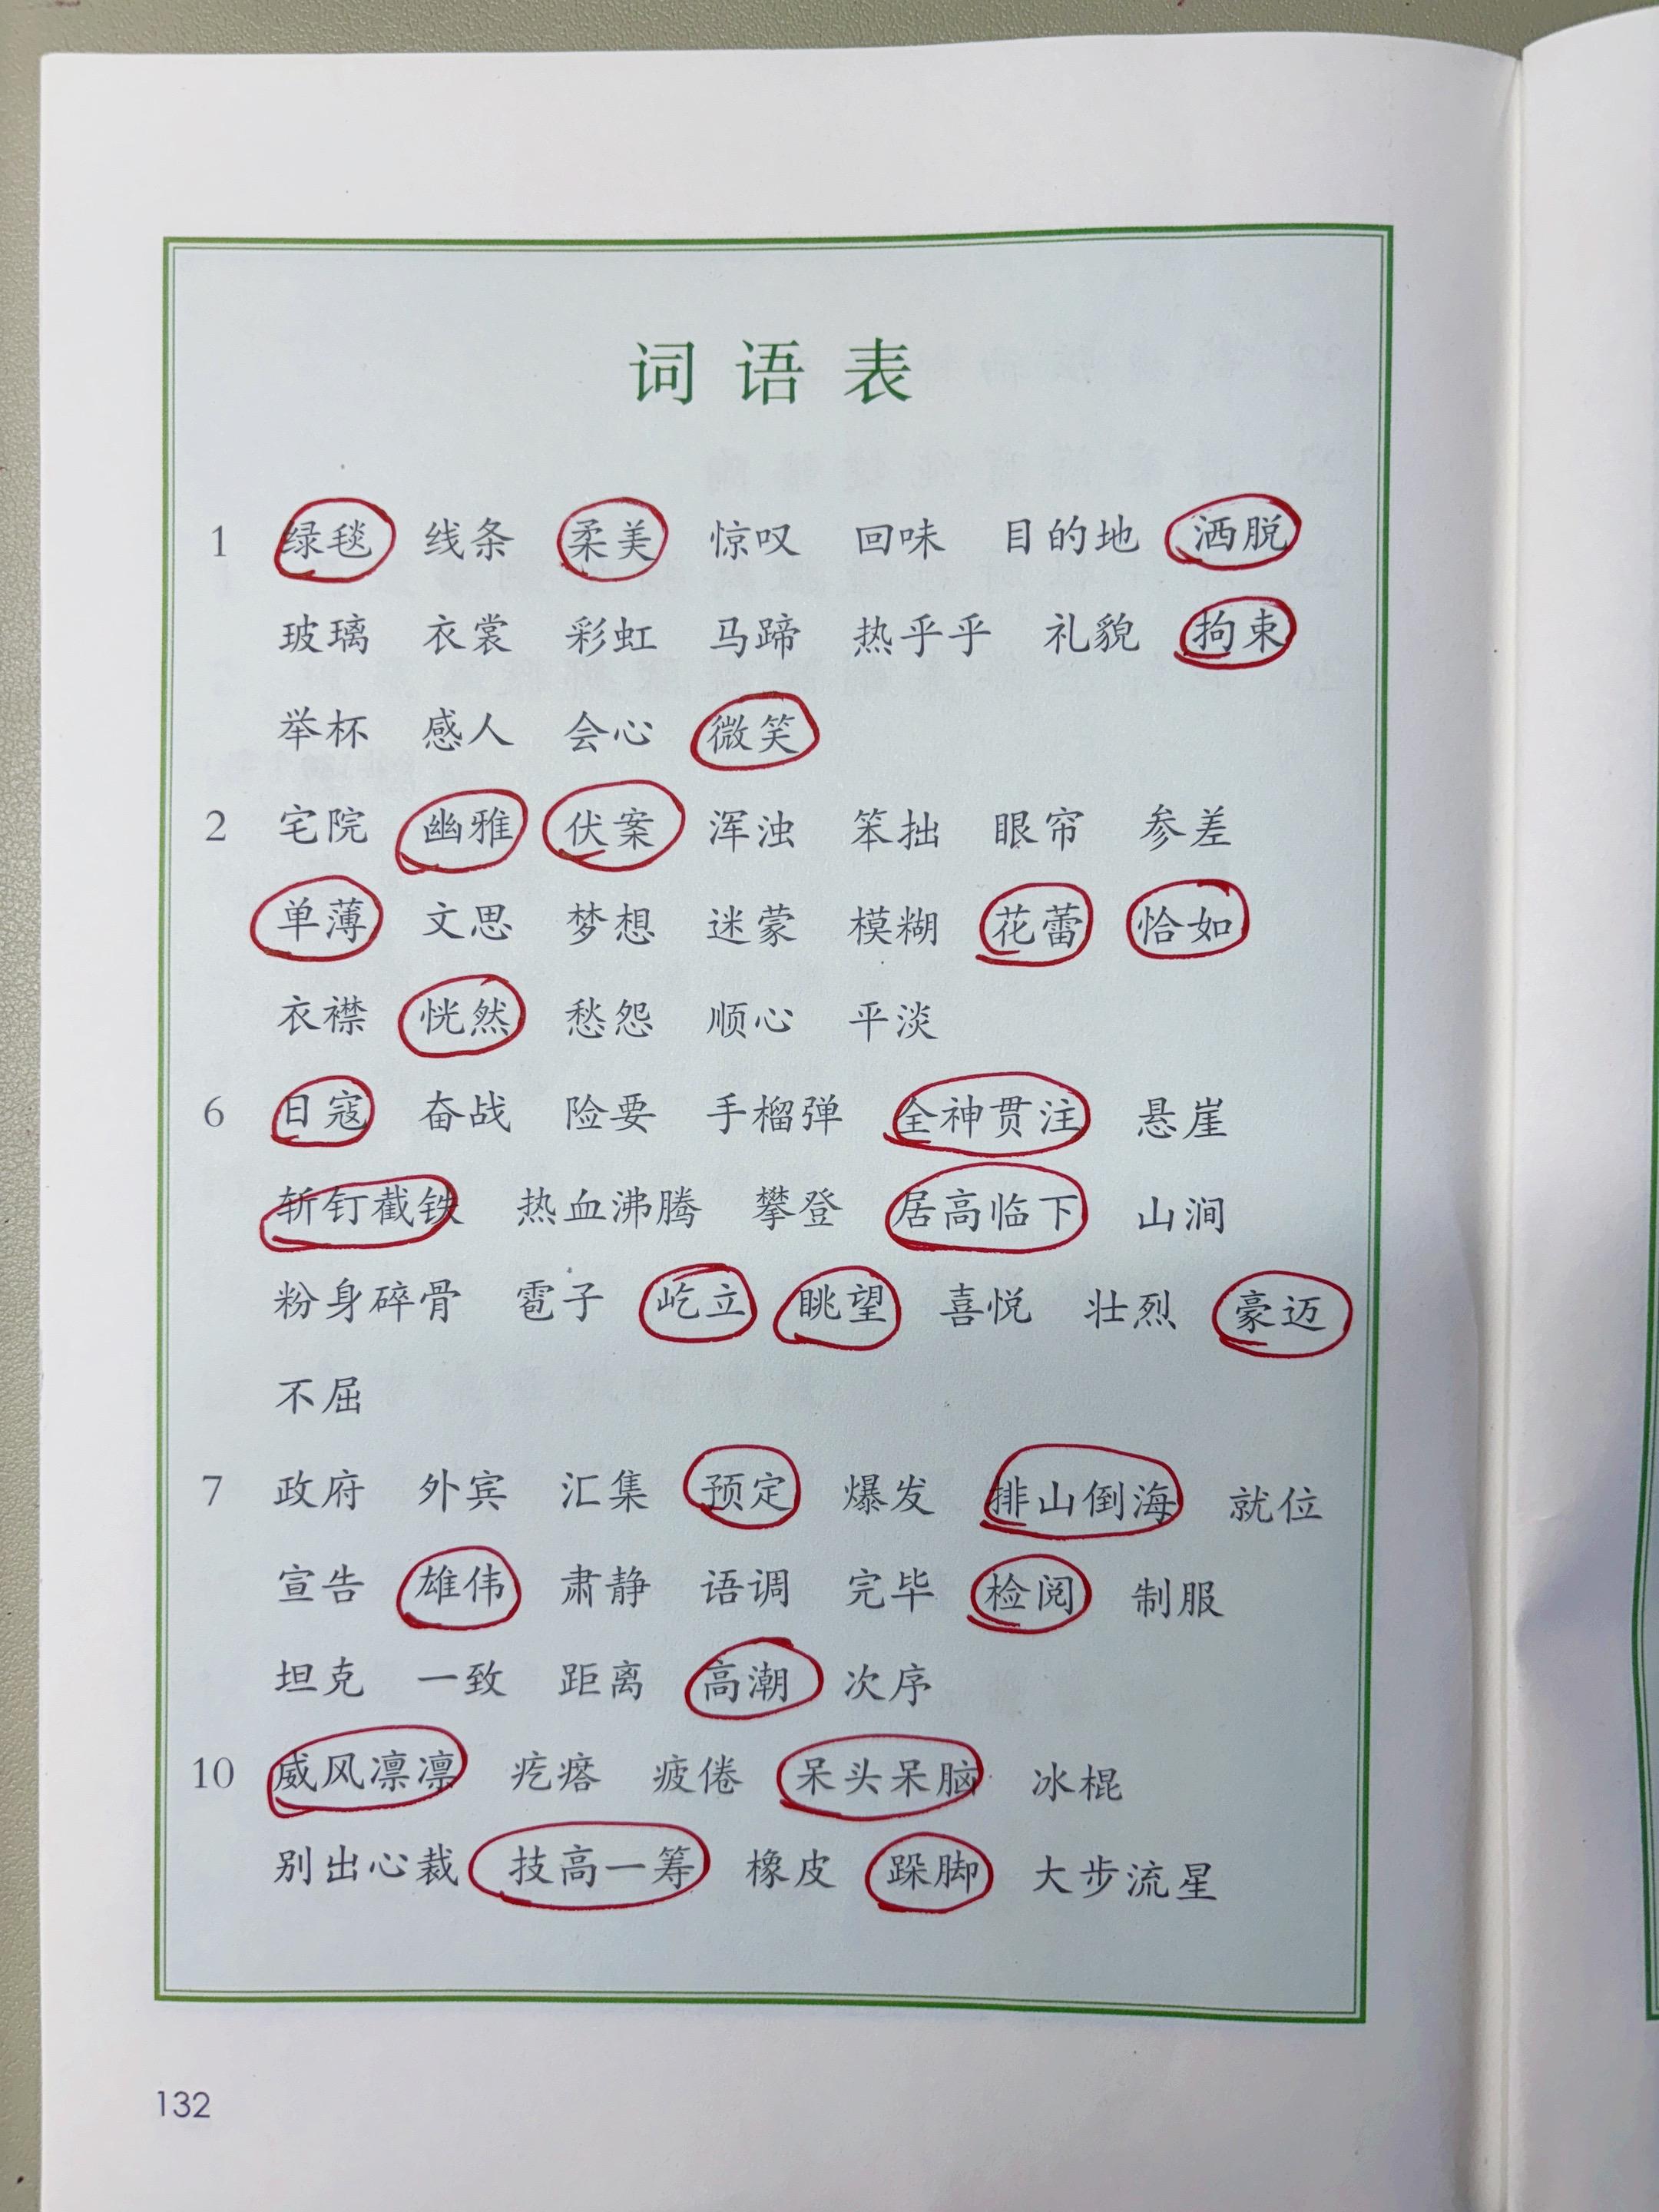 词语表
1 绿毯 线条 柔美 惊叹 回味 目的地 洒脱
玻璃 衣裳 彩虹 马蹄 热乎乎 礼貌 拘束
举杯 感人 会心 微笑
2 宅院 幽雅 伏案 浑浊 笨拙 眼帘 参差
单薄 文思 梦想 迷蒙 模糊 花蕾 恰如
衣襟 恍然 愁怨 顺心 平淡
6 日寇 奋战 险要 手榴弹 全神贯注 悬崖
斩钉截铁 热血沸腾 攀登 居高临下 山涧
粉身碎骨 雹子 屹立 眺望 喜悦 壮烈 豪迈
不屈
7 政府 外宾 汇集 预定 爆发 排山倒海 就位
宣告 雄伟 肃静 语调 完毕 检阅 制服
坦克 一致 距离 高潮 次序
10 威风凛凛 疙瘩 疲倦 呆头呆脑 冰棍
别出心裁 技高一筹 橡皮 跺脚 大步流星
132